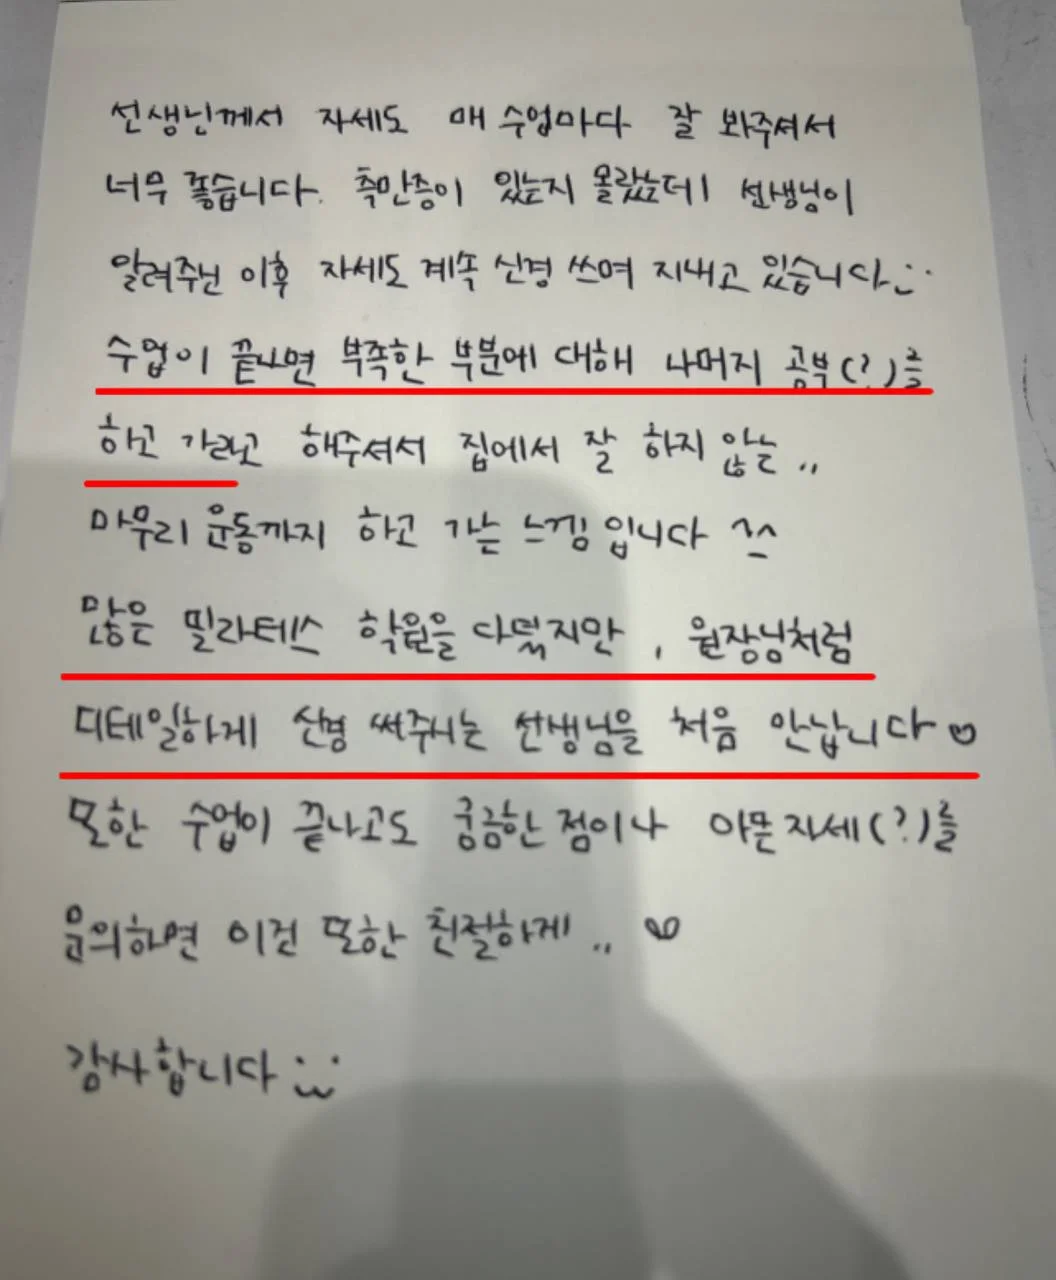 선생님께서 자세도 매 수업마다 잘 봐주셔서
너무 좋습니다. 측만증이 있는지 몰랐는데 선생님이
알려주신 이후 자세도 계속 신경 쓰며 지내고 있습니다 :)
수업이 끝나면 부족한 부분에 대해 나머지 공부(?)를
하고 가라고 해주셔서 집에서 잘 하지 않는..
마무리 운동까지 하고 가는 느낌입니다 ^^
많은 필라테스 학원을 다녔지만, 원장님처럼
디테일하게 신경 써주시는 선생님을 처음 만납니다♡
또한 수업이 끝나고도 궁금한 점이나 아픈 자세(?)를
문의하면 이건 또한 친절하게.. ♡
감사합니다 :)